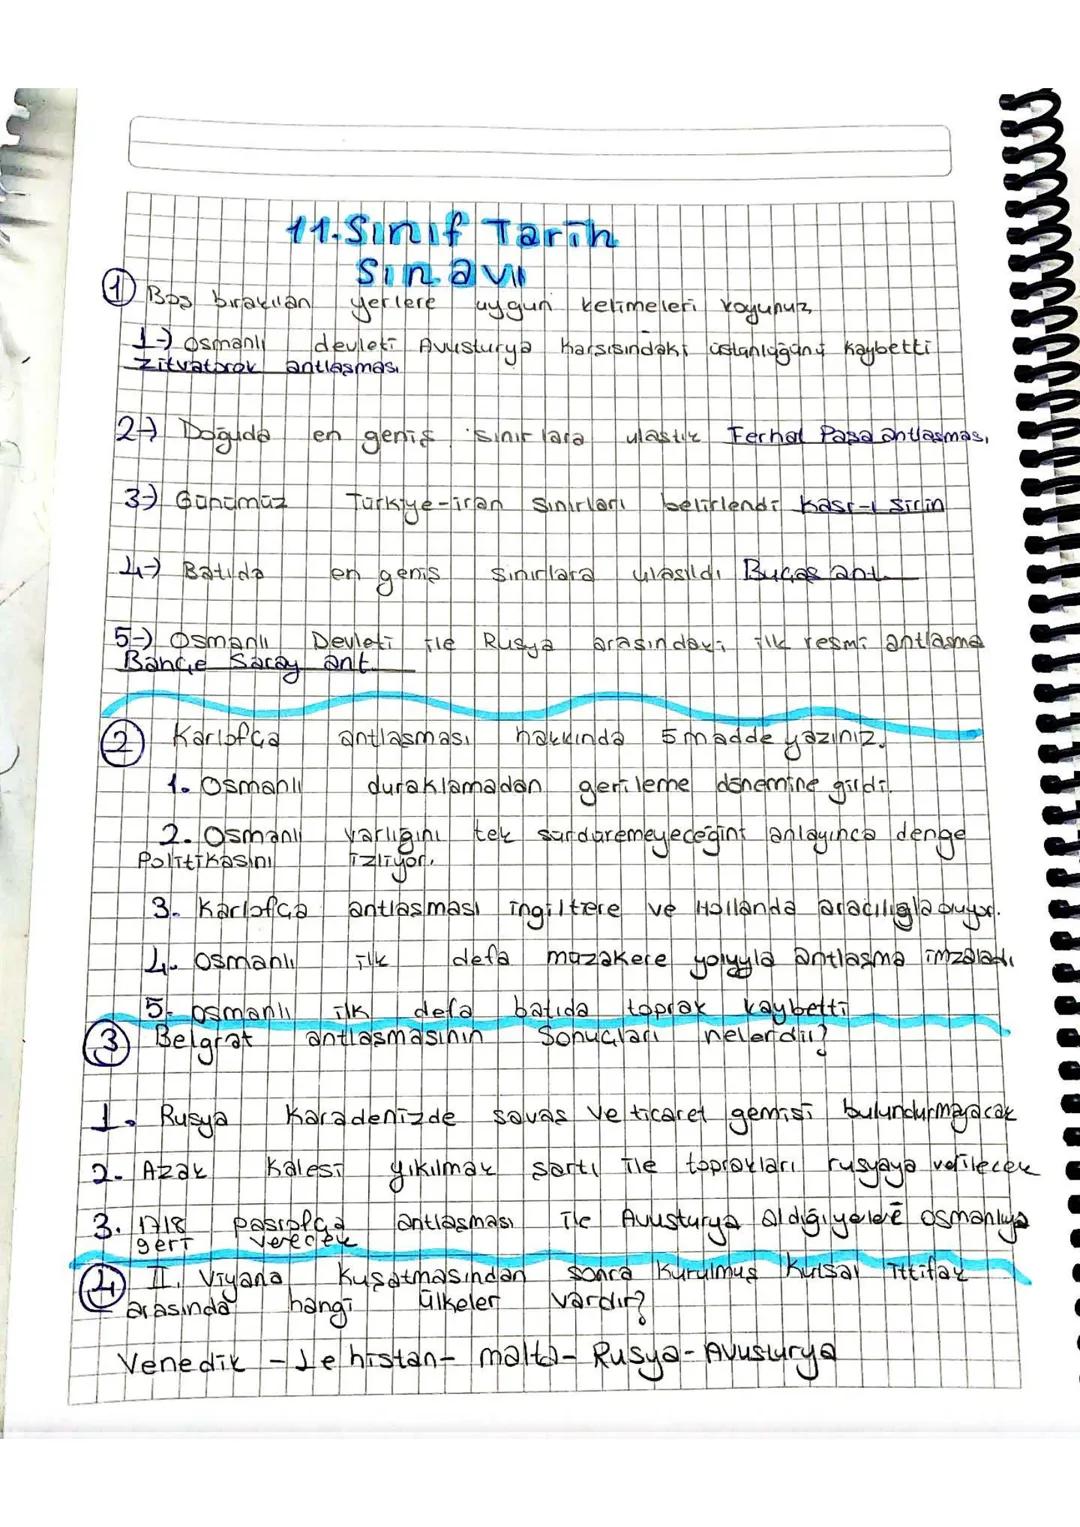 11.Sınıf Tarih
Sınavı
1 Boş bırakılan yerlere uygun kelimeleri koyunuz
1-) Osmanlı devleti Avusturya karşısındaki üstünlüğünü kaybetti
Zitvatorok antlaşması
2-) Doğuda en geniş sınırlara ulaştık Ferhat Paşa antlaşması
3-) Günümüz Türkiye-iran Sınırları belirlendi Kasr-ı Şirin
4-) Batıda en geniş sınırlara ulaşıldı Bucaş ant.
5-) Osmanlı Devleti ile Rusya arasındaki ilk resmi antlaşma
Bahçe Saray ant.
2 Karlofça antlaşması hakkında 5 madde yazınız.
1. Osmanlı duraklamadan gerileme dönemine girdi.
2. Osmanlı varlığını tek sürdüremeyeceğini anlayınca denge
Politikasını izliyor.
3. Karlofça antlaşması ingiltere ve Hollanda aracılığla oluyor.
4. Osmanlı ilk defa müzakere yoluyla antlaşma imzaladı
5. osmanlı ilk defa batıda toprak kaybetti
3 Belgrat antlaşmasının Sonuçları nelerdir?
1. Rusya Karadenizde savaş ve ticaret gemisi bulundurmayacak
2. Azak Kalesi yıkılmak şartı ile toprakları rusyaya verilecek
3. 1718 pasrofça antlaşması ile Avusturya aldığı yerleri osmanlıya
geri verecek
4 II. Viyana Kuşatmasından sonra kurulmuş kutsal ittifak
arasında hangi ülkeler vardır?
Venedik - Lehistan - malta - Rusya - Avusturya